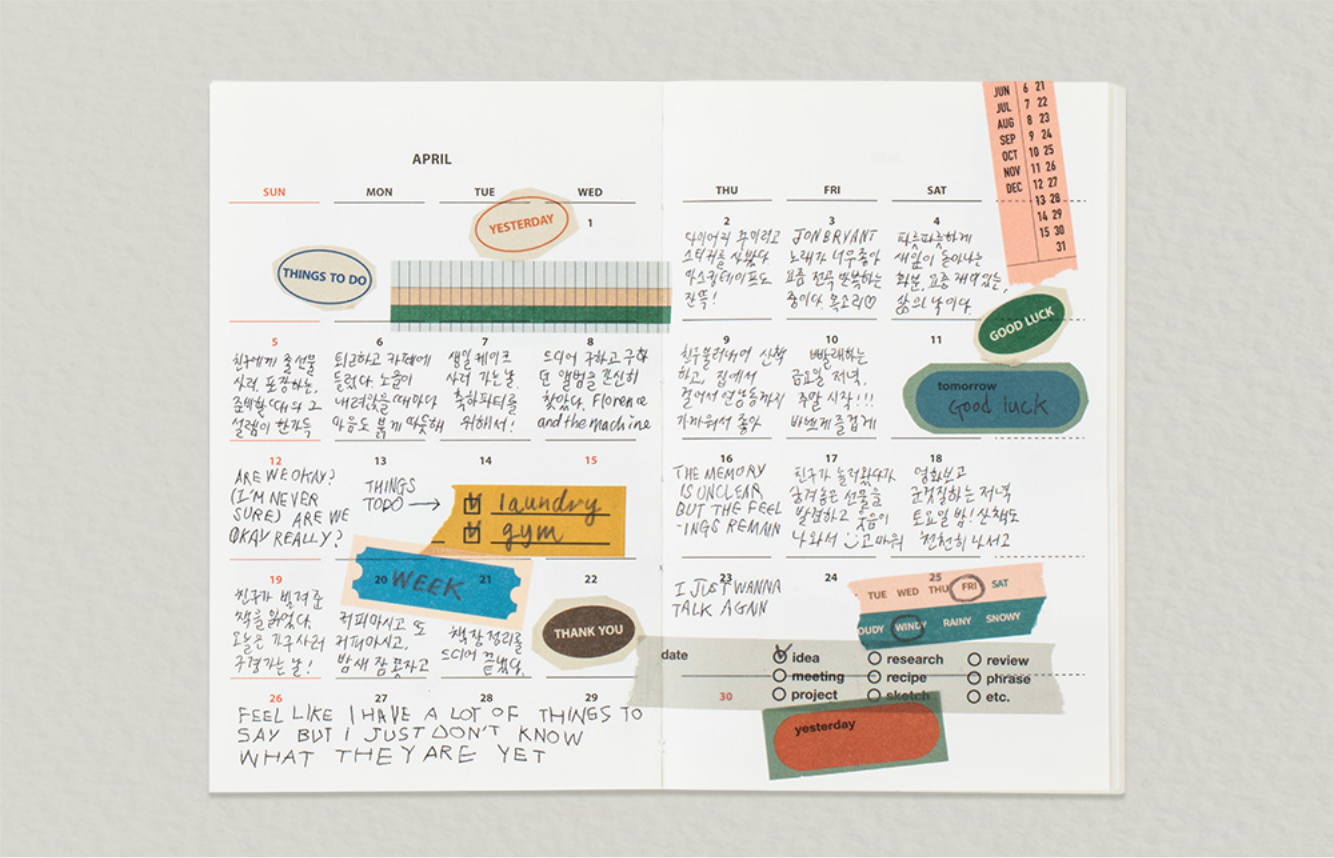 APRIL
SUN MON TUE WED
THU FRI SAT
JUN 6 21
JUL 7 22
AUG 8 23
SEP 9 24
OCT 10 25
NOV 11 26
DEC 12 27
13 28
14 29
15 30
31
YESTERDAY
THINGS TO DO
1
2
다이어리 꾸미려고
스티커를 샀다
마스킹테이프도
잔뜩!
3
JON BRYANT
노래가 너무좋아
요즘 전곡 반복하는
중이다. 목소리♡
4
파릇파릇하게
새잎이 돋아나는
화분. 요즘 재미있는,
삶의 낙이다.
GOOD LUCK
5
친구에게 줄 선물
사러. 포장하는,
준비할 때의 그
설렘이 한가득
6
퇴근하고 카페에
들렀다. 노을이
내려앉을 때마다
마음도 붉게 따뜻해
7
생일 케이크
사러 가는 날.
축하파티를
위해서!
8
드디어 구하고 구하
던 앨범을 간신히
찾았다. Florence
and the machine
9
친구불러내어 산책
하고, 집에서
걸어서 연남동까지
가까워서 좋아
10
빨래하는
금요일 저녁.
주말 시작!!!
바쁘게 즐겁게
11
tomorrow
Good luck
12
ARE WE OKAY?
(I'M NEVER
SURE) ARE WE
OKAY REALLY?
13
THINGS
TODO →
14
15
laundry
gym
16
THE MEMORY
IS UNCLEAR
BUT THE FEEL
-INGS REMAIN
17
친구가 놀러왔다가
숨겨놓은 선물을
발견하고 웃음이
나와서 고마워
18
영화보고
군것질하는 저녁
토요일 밤! 산책도
천천히 나서고
19
친구가 빌려준
책을 읽었다.
오늘은 가구 사러
구경가는 날!
20
WEEK
21
커피마시고 또
커피마시고,
밤새 잠 못자고
책장정리를
드디어 끝냈다.
22
THANK YOU
23
I JUST WANNA
TALK AGAIN
24
25
TUE WED THU FRI SAT
OUDY WINDY RAINY SNOWY
date
idea research review
meeting recipe phrase
project sketch etc.
26
27
28
29
30
FEEL LIKE I HAVE A LOT OF THINGS TO
SAY BUT I JUST DON'T KNOW
WHAT THEY ARE YET
yesterday